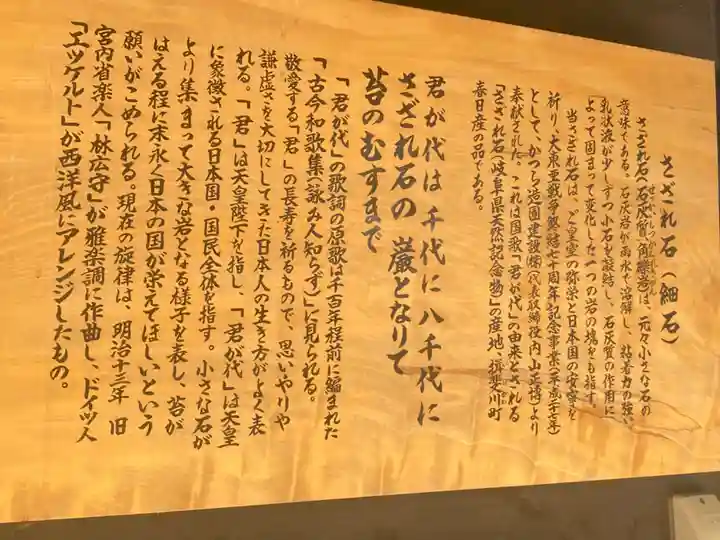 さざれ石(細石)
さざれ石(石灰質角礫岩)は、元々小さな石の
意味である。石灰岩が雨水で溶解し、粘着力の強い
乳状液が少しずつ小石を凝結し、石灰質の作用に
よって固まって変化した一つの岩の塊をも指す。
当さざれ石は、ご皇室の弥栄と日本国の安寧を
祈り、大東亜戦争終結七十周年記念事業(平成二十七年)
として、かつら造園建設㈱(代表取締役内山正博)より
奉献された。これは国歌「君が代」の由来とされる
「さざれ石(岐阜県天然記念物)」の産地、揖斐川町
春日産の品である。
君が代は 千代に 八千代に
さざれ石の 巌となりて
苔のむすまで
「君が代」の歌詞の原歌は千百年程前に編まれた
「古今和歌集(詠み人知らず)」に見られる。
敬愛する「君」の長寿を祈るもので、思いやりや
謙虚さを大切にしてきた日本人の生き方がよく表
れる。「君」は天皇陛下を指し、「君が代」は天皇
に象徴される日本国・国民全体を指す。小さな石が
より集まって大きな岩となる様子を表し、苔が
はえる程に末永く日本の国が栄えてほしいという
願いがこめられる。現在の旋律は、明治十三年 旧
宮内省楽人「林広守」が雅楽調に作曲し、ドイツ人
「エッケルト」が西洋風にアレンジしたもの。